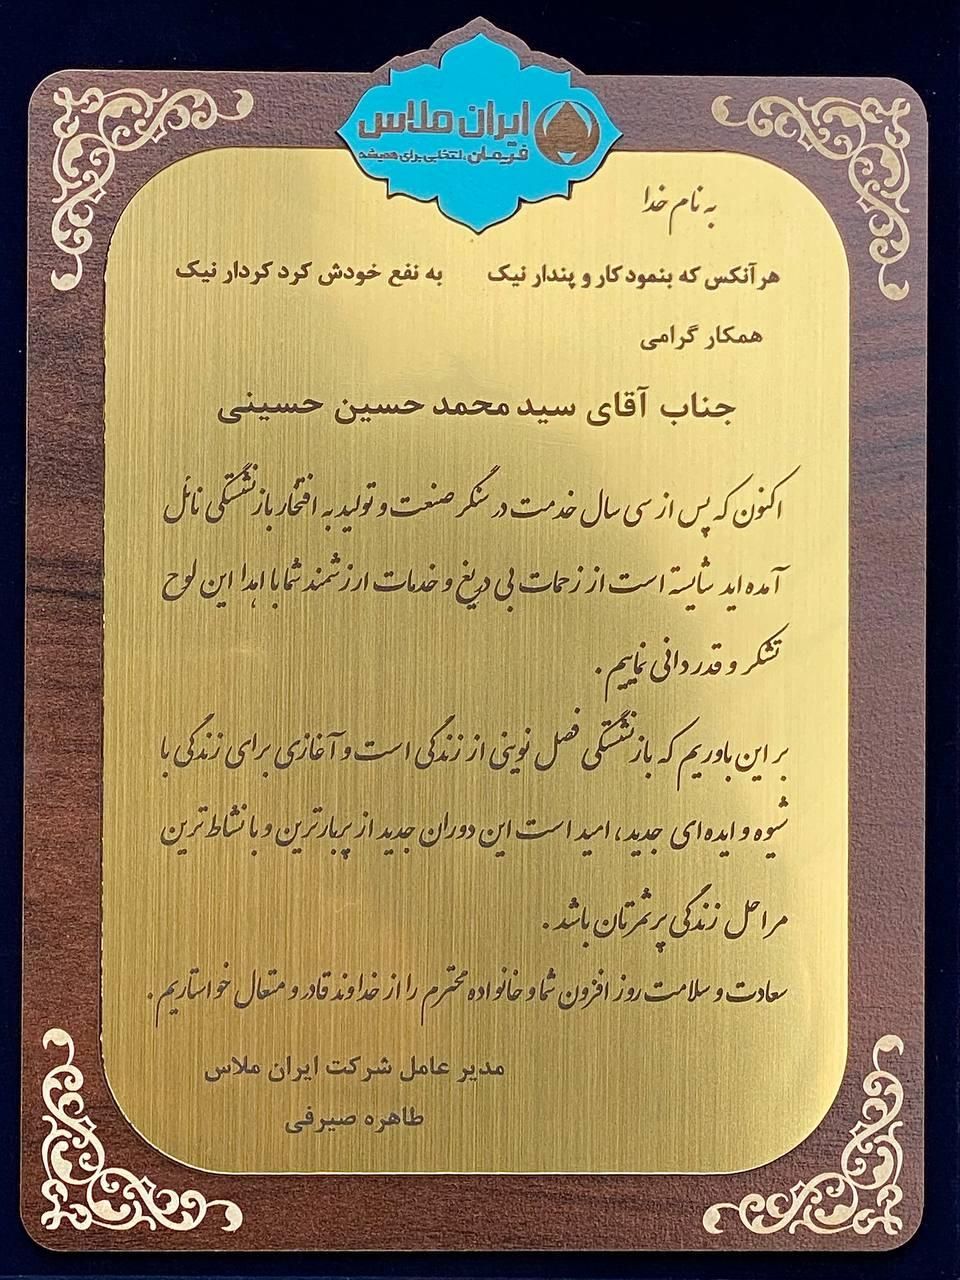 ایران ملاس
فریمان، انتخابی برای همیشه
به نام خدا
هر آنکس که بنمود کار و پندار نیک به نفع خودش کرد کردار نیک
همکار گرامی
جناب آقای سید محمد حسین حسینی
اکنون که پس از سی سال خدمت در سنگر صنعت و تولید به افتخار بازنشستگی نائل
آمده اید شایسته است از زحمات بی دریغ و خدمات ارزشمند شما با اهدا این لوح
تشکر و قدردانی نماییم .
بر این باوریم که بازنشستگی فصل نوینی از زندگی است و آغازی برای زندگی با
شیوه و ایده ای جدید ، امید است این دوران جدید از پربارترین و با نشاط ترین
مراحل زندگی پرثمرتان باشد .
سعادت و سلامت روز افزون شما و خانواده محترم را از خداوند قادر و متعال خواستاریم .
مدیر عامل شرکت ایران ملاس
طاهره صیرفی